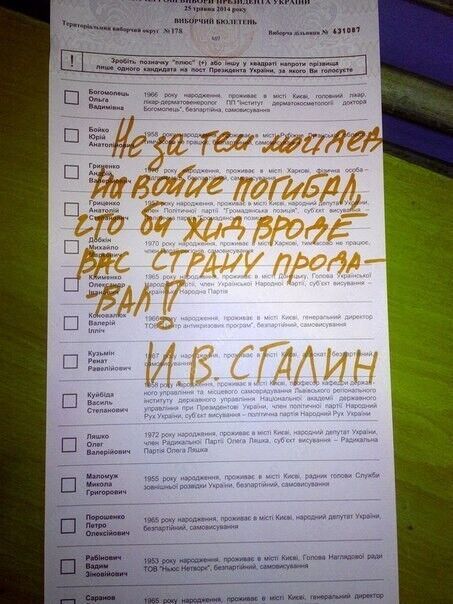 ПОЗАЧЕРГОВІ ВИБОРИ ПРЕЗИДЕНТА УКРАЇНИ
25 травня 2014 року
ВИБОРЧИЙ БЮЛЕТЕНЬ
Територіальний виборчий округ № 178
Виборча дільниця № 631087
! Зробіть позначку "плюс" (+) або іншу у квадраті напроти прізвища
лише одного кандидата на пост Президента України, за якого Ви голосуєте
Богомолець Ольга Вадимівна
1966 року народження, проживає в місті Києві, головний лікар,
лікар-дерматовенеролог ПП "Інститут дерматокосметології доктора
Богомолець", безпартійна, самовисування
Бойко Юрій Анатолійович
1958 року народження, проживає в місті
Гриценко
Гриценко Анатолій Степанович
член Політичної партії "Громадянська позиція", суб'єкт висування –
Добкін Михайло
1970 року народження, проживає в місті Харкові, тимчасово не працює,
Клименко Олександр Іванович
1965 року народження, проживає в місті Донецьку, Голова Української
Народної партії, член Української Народної Партії, суб'єкт висування –
Українська Народна Партія
Коновалюк Валерій Ілліч
1966 року народження, проживає в місті Києві, генеральний директор
ТОВ "Центр антикризових програм", безпартійний, самовисування
Кузьмін Ренат Равелійович
1967 року народження, проживає в місті Києві, адвокат, безпартійний,
самовисування
Куйбіда Василь Степанович
1958 року народження, проживає в місті Києві, професор кафедри держав-
ного управління та місцевого самоврядування Львівського регіонального
інституту державного управління Національної академії державного
управління при Президентові України, член політичної партії Народний
Рух України, суб'єкт висування – політична партія Народний Рух України
Ляшко Олег Валерійович
1972 року народження, проживає в місті Києві, народний депутат України,
член Радикальної Партії Олега Ляшка, суб'єкт висування – Радикальна
Партія Олега Ляшка
Маломуж Микола Григорович
1955 року народження, проживає в місті Києві, радник голови Служби
зовнішньої розвідки України, безпартійний, самовисування
Порошенко Петро Олексійович
1965 року народження, проживає в місті Києві, народний депутат України,
безпартійний, самовисування
Рабінович Вадим Зіновійович
1953 року народження, проживає в місті Києві, Голова Наглядової ради
ТОВ "Ньюс Нетворк", безпартійний, самовисування
Саранов
1965 року народження, проживає в місті Києві, генеральний директор
Не за теи мои дед
на войне погибал,
сто би жид вроде
вас страну прода-
-вал!!
И.В. СТАЛИН